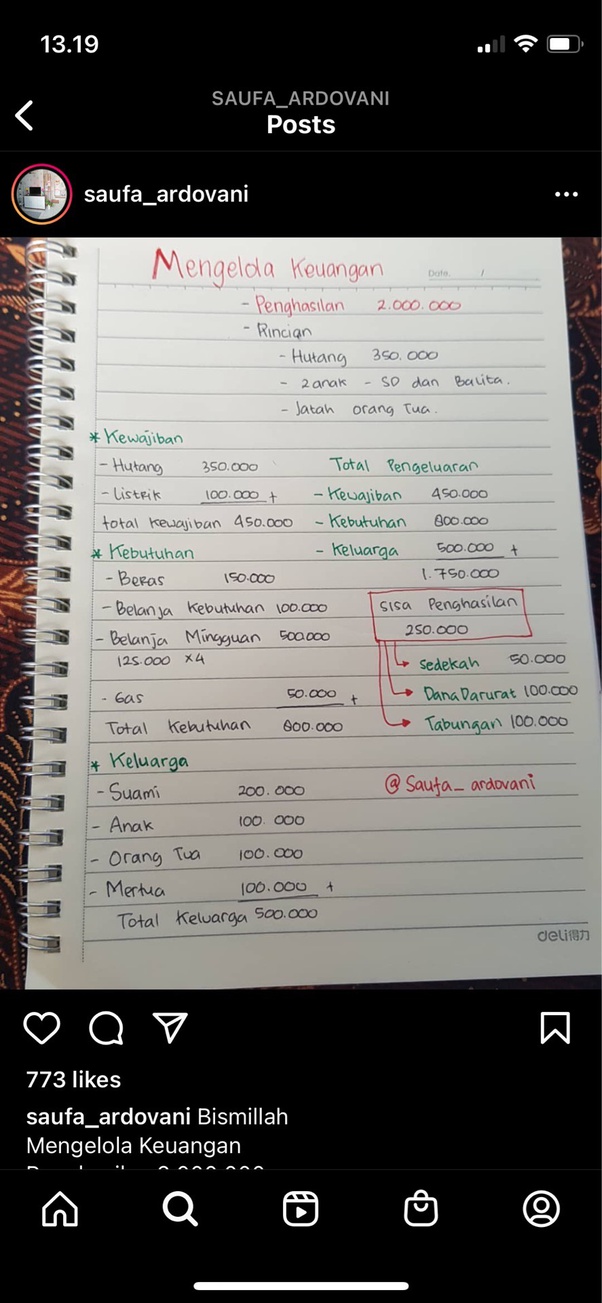 13.19
SAUFA_ARDOVANI
Posts
saufa_ardovani
Mengelola Keuangan
Date. /
- Penghasilan 2.000.000
- Rincian
- Hutang 350.000
- 2 anak - SD dan Balita.
- Jatah orang Tua.
* Kewajiban
- Hutang 350.000
Total Pengeluaran
- Listrik 100.000 +
- Kewajiban 450.000
total kewajiban 450.000
- Kebutuhan 800.000
* Kebutuhan
- Keluarga 500.000 +
- Beras 150.000
1.750.000
- Belanja Kebutuhan 100.000
Sisa Penghasilan
- Belanja Mingguan 500.000
250.000
125.000 x4
Sedekah 50.000
- Gas 50.000 +
Dana Darurat 100.000
Total Kebutuhan 800.000
Tabungan 100.000
* Keluarga
- Suami 200.000
@Saufa_ardovani
- Anak 100.000
- Orang Tua 100.000
- Mertua 100.000 +
Total Keluarga 500.000
deli得力
773 likes
saufa_ardovani Bismillah
Mengelola Keuangan